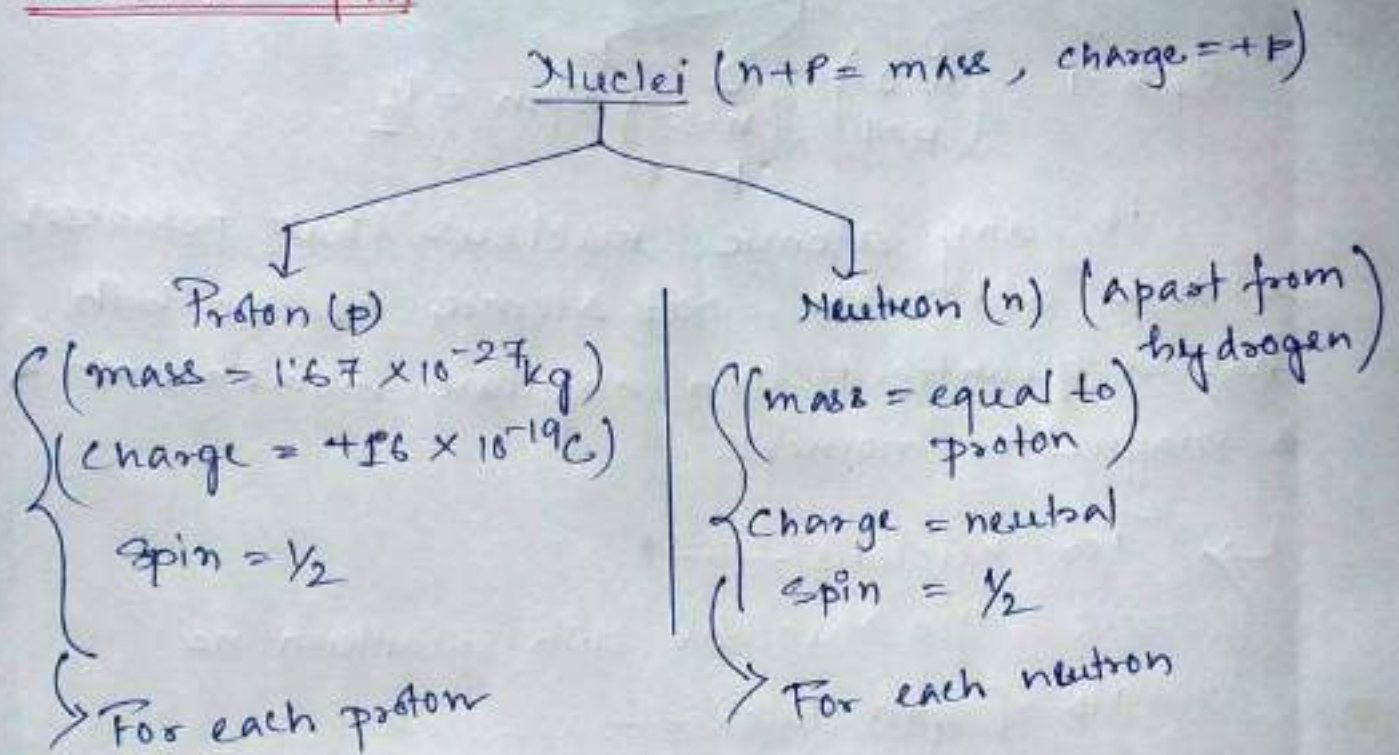 Nuclei (n+P = mass, charge = +P)
Proton (p)
(mass = 1.67 × 10⁻²⁷ kg)
(charge = +1.6 × 10⁻¹⁹C)
spin = 1/2
For each proton
Neutron (n) (apart from
hydrogen)
(mass = equal to
proton)
Charge = neutral
spin = 1/2
For each neutron